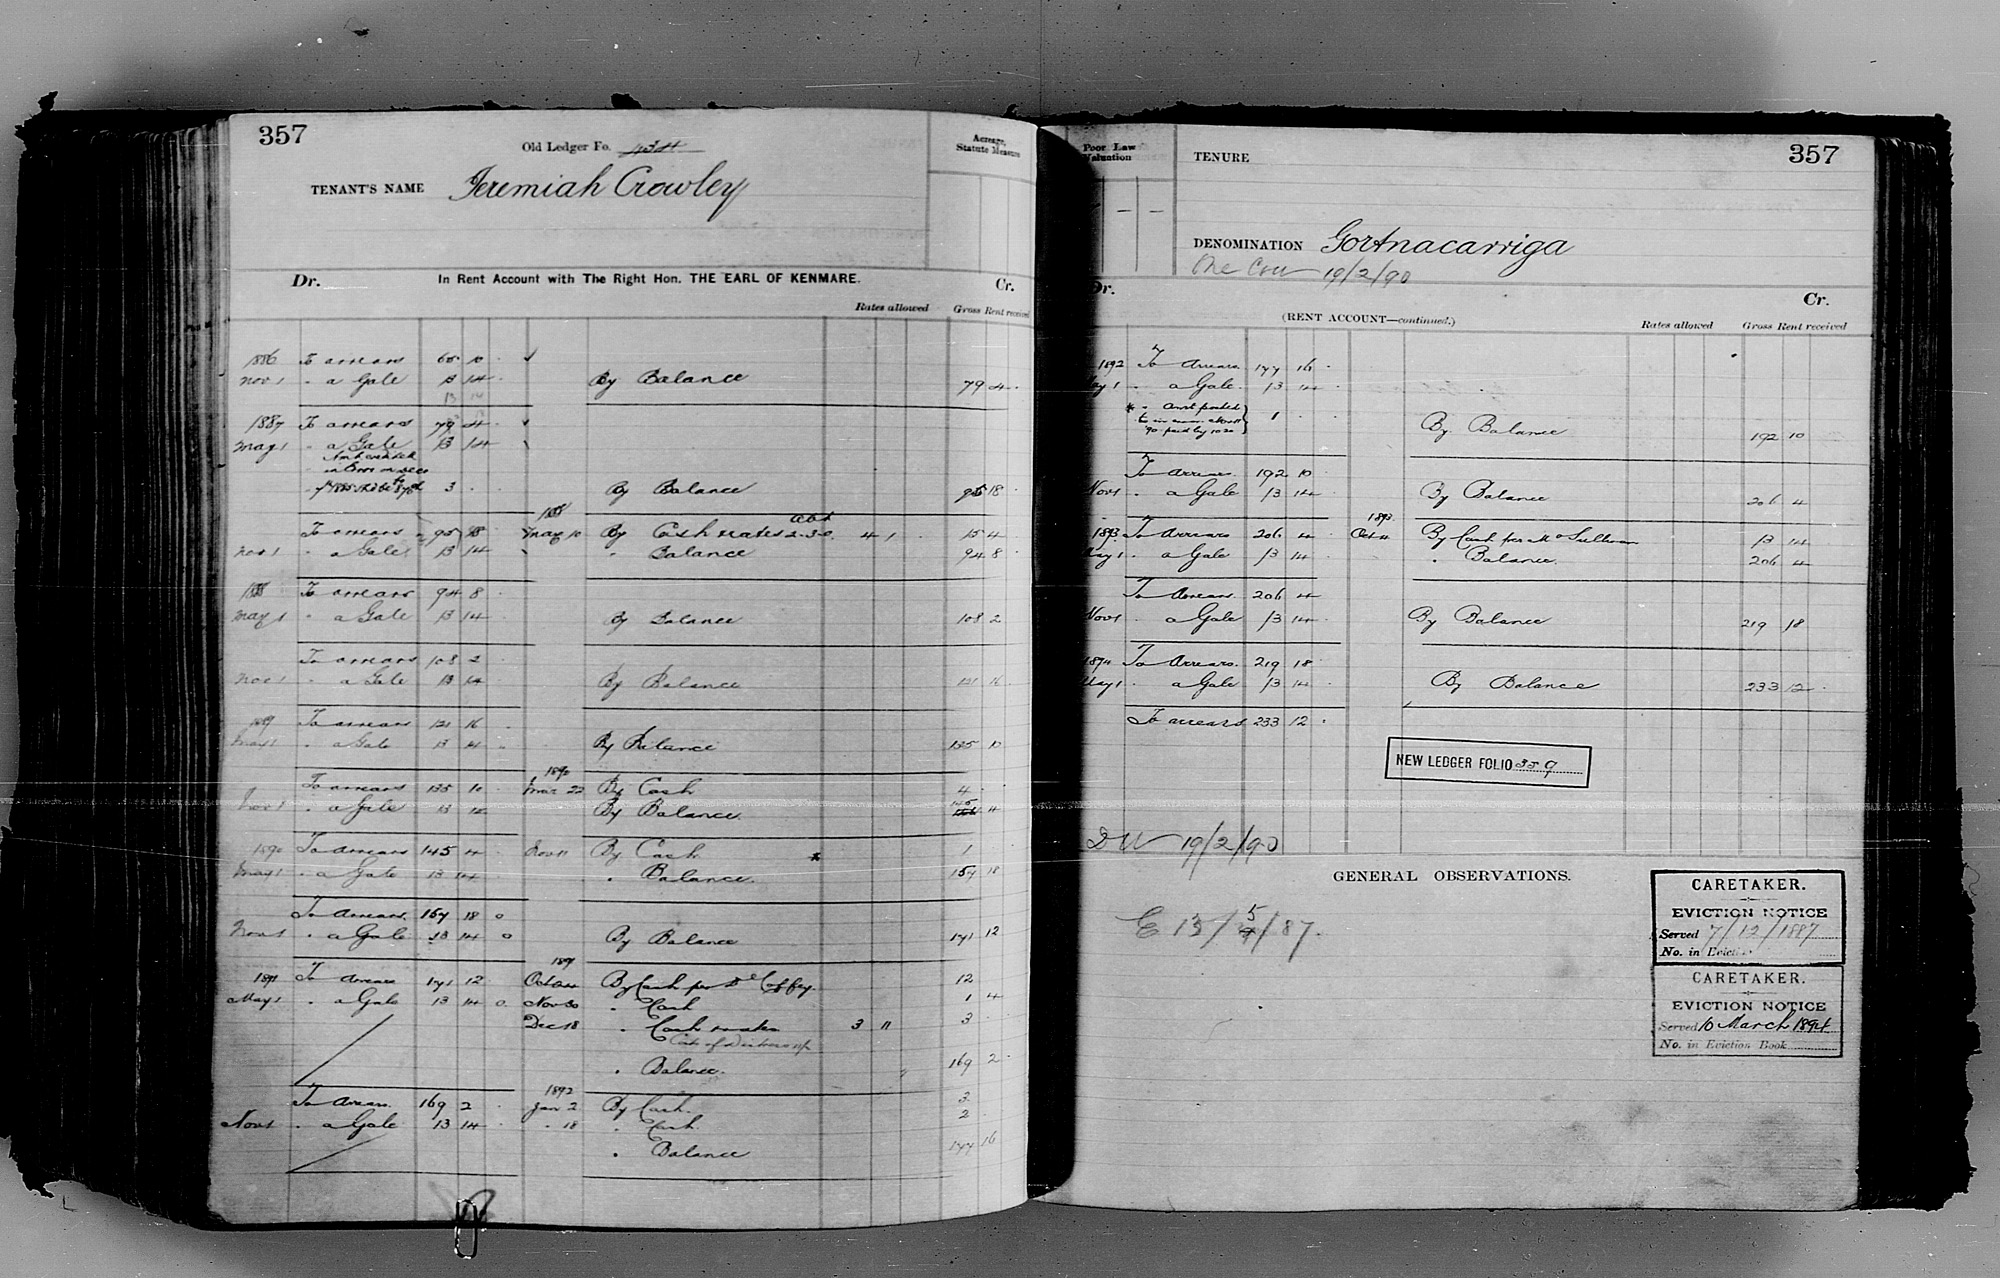 357
Old Ledger Fo. 434
Acreage, Statute Measure
TENANT'S NAME Jeremiah Crowley
Dr. In Rent Account with The Right Hon. THE EARL OF KENMARE. Cr.
Rates allowed Gross Rent received
1886 To arrears 65 10
Nov 1 " a Gale 13 14 By Balance 79 4
13 14
1887 To arrears 79 4
May 1 " a Gale 13 14
3 By Balance 95 18
1888
To arrears 95 18 May 10 By Cash rates 2-3-0 4 1 15 4
Nov 1 " a Gale 13 14 " Balance 94 8
1888 To arrears 94 8
May 1 " a Gale 13 14 By Balance 108 2
To arrears 108 2
Nov 1 " a Gale 13 14 By Balance 121 16
1889 To arrears 121 16
May 1 " a Gale 13 14 By Balance 135 10
1890
To arrears 135 10 Mar 22 By Cash 4
Nov 1 " a Gale 13 14 By Balance 145 4
1890 To arrears 145 4 Nov 11 By Cash * 1
May 1 " a Gale 13 14 " Balance 157 18
To arrears 157 18 0
Nov 1 " a Gale 13 14 0 By Balance 171 12
1891
1891 To arrears 171 12 Oct 24 By Cash per D Coffey 12
May 1 " a Gale 13 14 0 Nov 30 " Cash 1 4
Dec 18 " Cash rates 3 11 3
" Balance 169 2
1892
To arrears 169 2 Jan 2 By Cash 3
Nov 1 " a Gale 13 14 " 18 " Cash 2
" Balance 177 16
Poor Law Valuation
TENURE 357
DENOMINATION Gortnacarriga
One Cow 19/2/90
Dr. Cr.
(RENT ACCOUNT—continued.)
Rates allowed Gross Rent received
1892 To arrears 177 16
May 1 " a Gale 13 14
* " Amt posted 1
By Balance 192 10
To arrears 192 10
Nov 1 " a Gale 13 14 By Balance 206 4
1893
1893 To arrears 206 4 Oct 4 By Cash per M O'Sullivan 13 14
May 1 " a Gale 13 14 " Balance 206 4
To arrears 206 4
Nov 1 " a Gale 13 14 By Balance 219 18
1894 To arrears 219 18
May 1 " a Gale 13 14 By Balance 233 12
To arrears 233 12
NEW LEDGER FOLIO 359
DW 19/2/90
GENERAL OBSERVATIONS.
E 13/5/87.
CARETAKER.
EVICTION NOTICE
Served 7/12/1887
No. in Evictio
CARETAKER.
EVICTION NOTICE
Served 10 March 1894
No. in Eviction Book